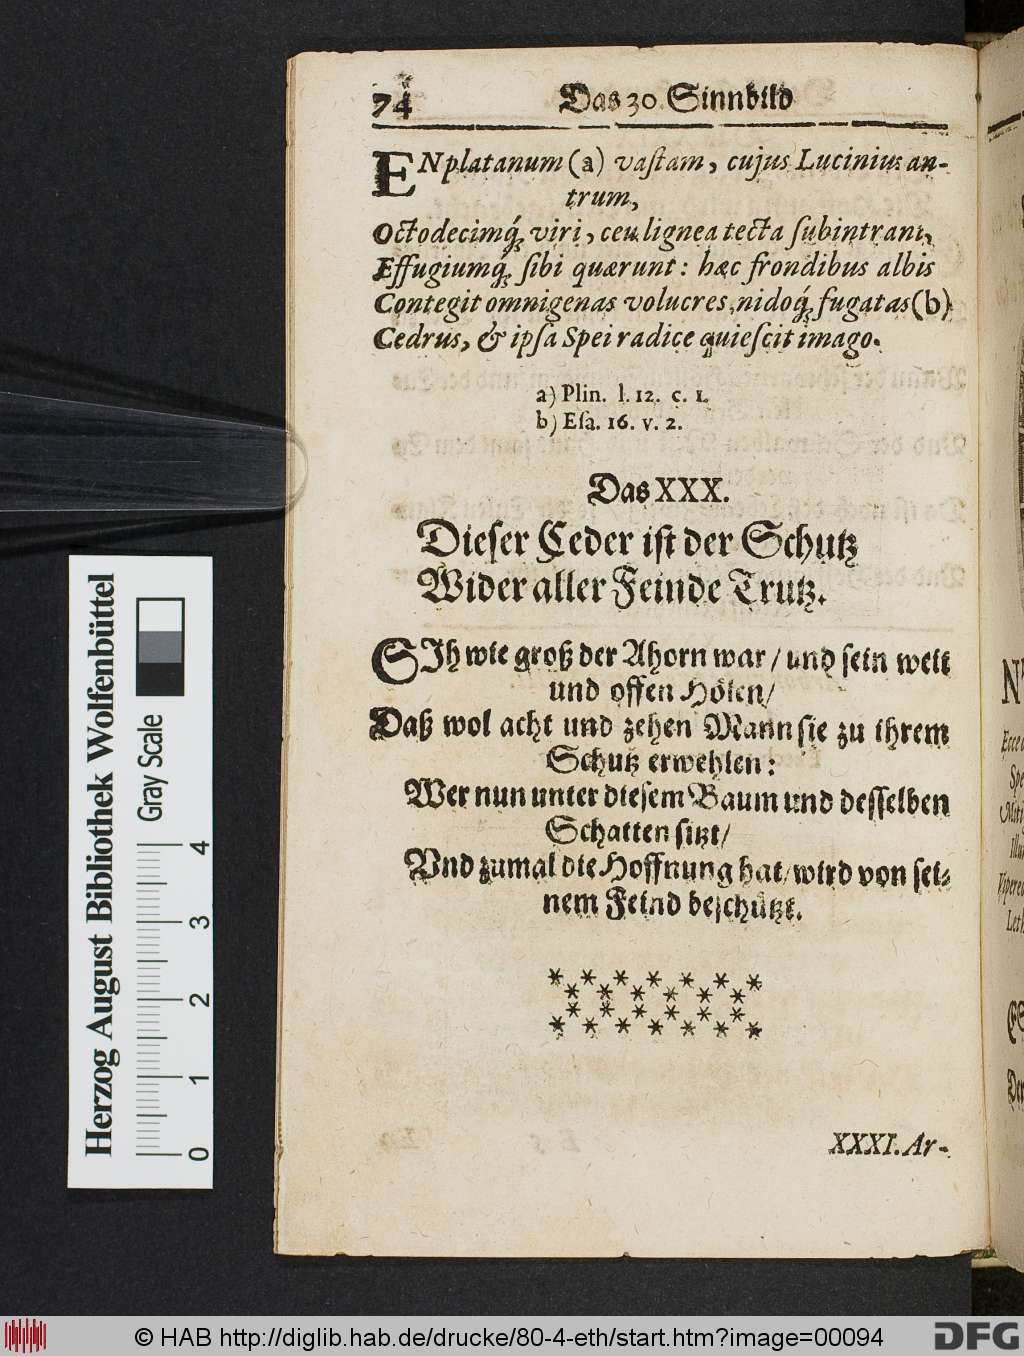 74 Das 30 Sinnbild
EN platanum (a) vaſtam, cujus Lucinius an-
trum,
Octodecimq́; viri, ceu lignea tecta ſubintrant,
Effugiumq́; ſibi quærunt: hæc frondibus albis
Contegit omnigenas volucres, nidoq́; fugatas (b)
Cedrus, & ipſa Spei radice quieſcit imago.
a) Plin. l. 12. c. 1.
b) Eſa. 16. v. 2.
Das XXX.
Dieſer Ceder iſt der Schutz
Wider aller Feinde Trutz.
SIh wie groß der Ahorn war / und ſein weit
und offen Hölen /
Daß wol acht und zehen Mann ſie zu ihrem
Schutz erwehlen:
Wer nun unter dieſem Baum und deſſelben
Schatten ſitzt /
Vnd zumal die Hoffnung hat / wird von ſei-
nem Feind beſchützt.
XXXI. Ar-
Herzog August Bibliothek Wolfenbüttel
Gray Scale
0 1 2 3 4
© HAB http://diglib.hab.de/drucke/80-4-eth/start.htm?image=00094
DFG